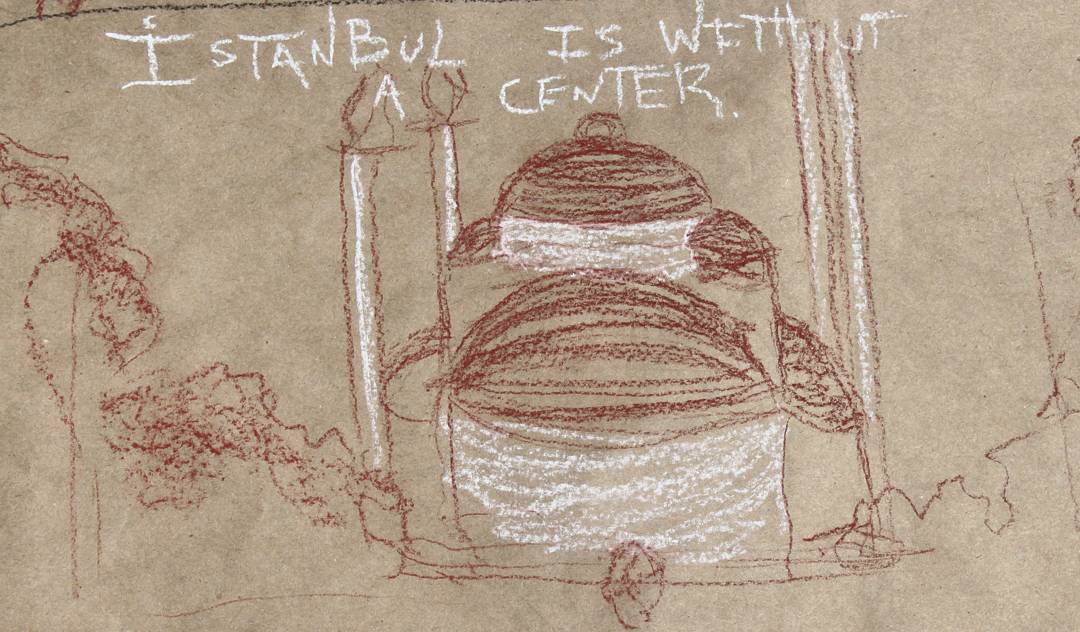 İSTANBUL IS WITHOUT
A CENTER.